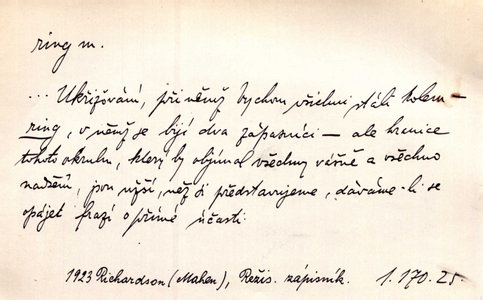 ring m.
... Ukřižování, při němž bychom všichni stáli kolem –
ring, v němž se bijí dva zápasníci – ale hranice
tohoto okruhu, který by objímal všechny vášně a všechno
nadšení, jsou užší, než si představujeme, dáváme-li se
opájet frazí o přímé účasti.
1923 Richardson (Mahen), Režis. zápisník. 1. 170. 25.